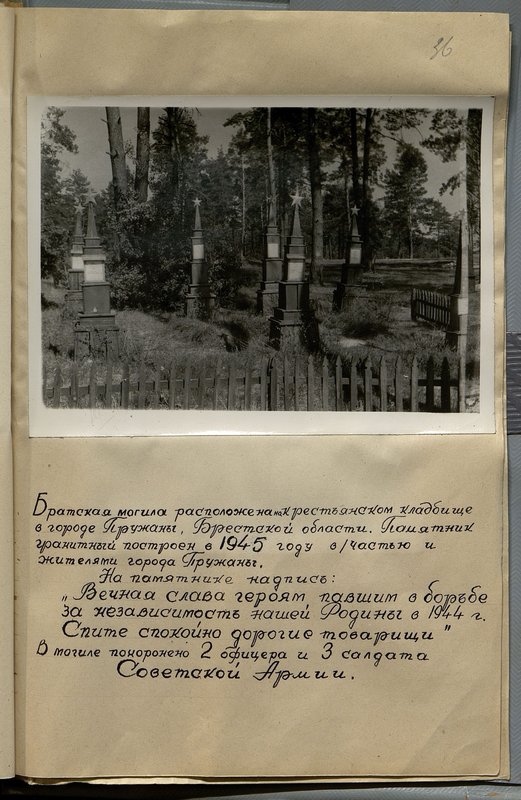 36
Братская могила расположена на крестьянском кладбище
в городе Пружаны, Брестской области. Памятник
гранитный построен в 1945 году в/частью и
жителями города Пружаны.
На памятнике надпись:
„Вечная слава героям павшим в борьбе
за независимость нашей Родины в 1944 г.
Спите спокойно дорогие товарищи"
В могиле похоронено 2 офицера и 3 солдата
Советской Армии.